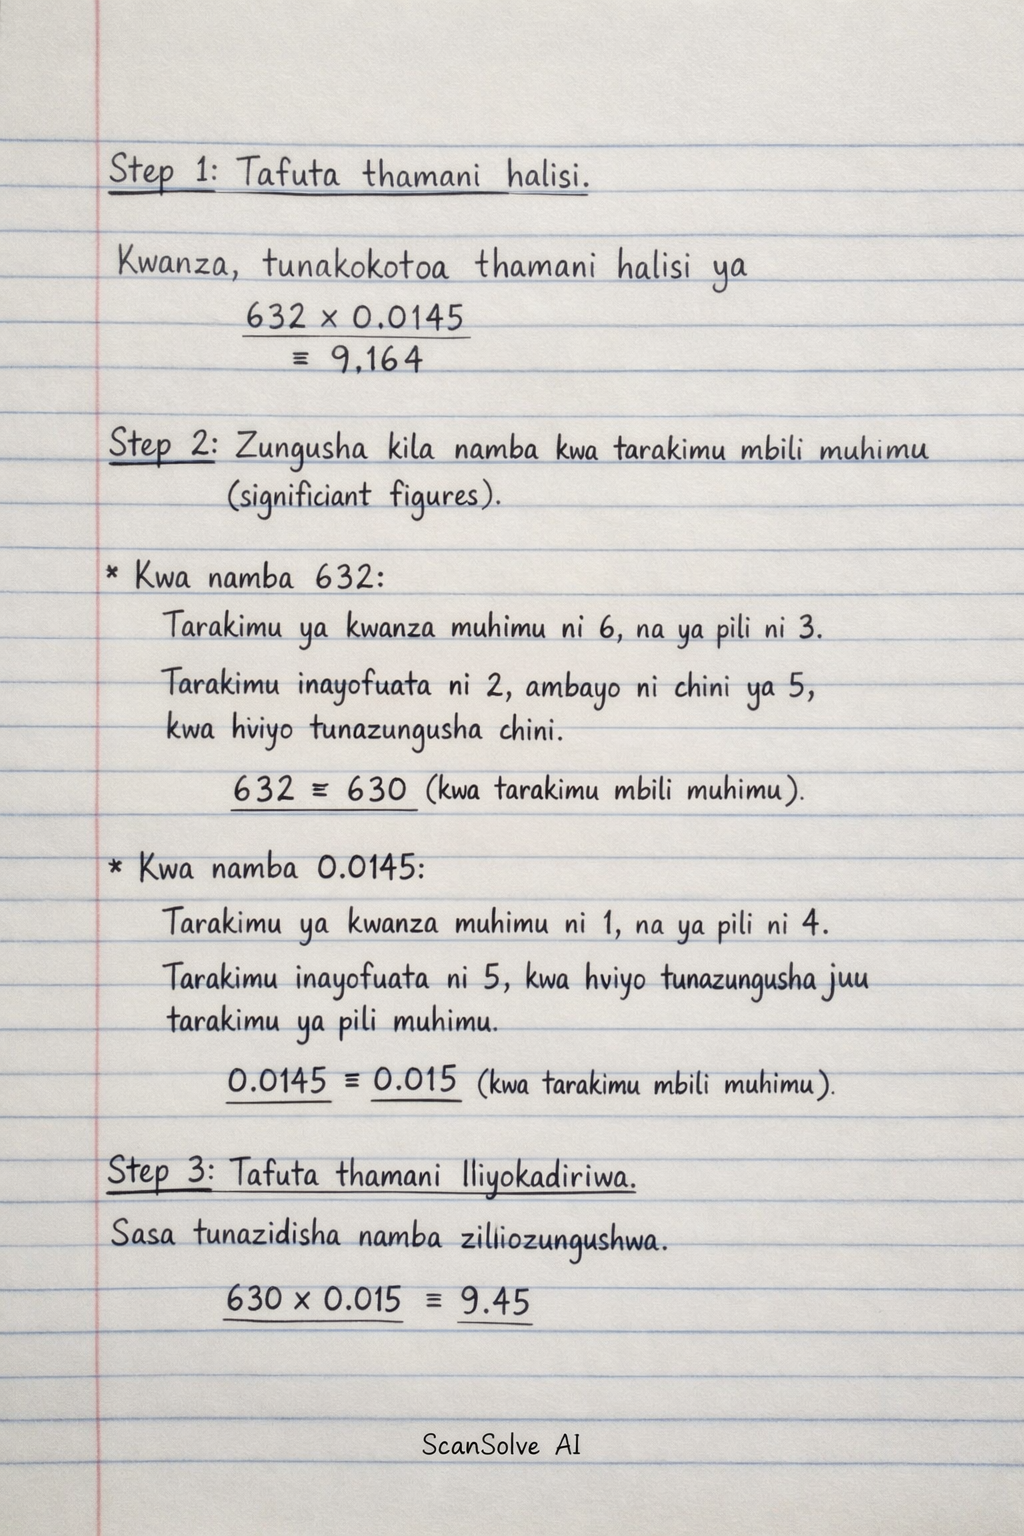 Step 1: Tafuta thamani halisi.
Kwanza, tunakokotoa thamani halisi ya
632 × 0.0145
≡ 9,164
Step 2: Zungusha kila namba kwa tarakimu mbili muhimu
(significiant figures).
* Kwa namba 632:
Tarakimu ya kwanza muhimu ni 6, na ya pili ni 3.
Tarakimu inayofuata ni 2, ambayo ni chini ya 5,
kwa hviyo tunazungusha chini.
632 ≡ 630 (kwa tarakimu mbili muhimu).
* Kwa namba 0.0145:
Tarakimu ya kwanza muhimu ni 1, na ya pili ni 4.
Tarakimu inayofuata ni 5, kwa hviyo tunazungusha juu
tarakimu ya pili muhimu.
0.0145 ≡ 0.015 (kwa tarakimu mbili muhimu).
Step 3: Tafuta thamani lliyokadiriwa.
Sasa tunazidisha namba zilliozungushwa.
630 × 0.015 ≡ 9.45
ScanSolve AI